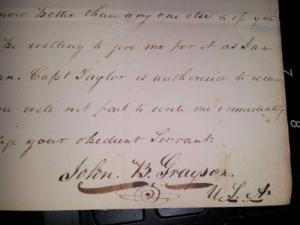 now better than any one else & if you
be willing to give me for it as I am
an. Capt Taylor is authorised to
ou will not fail to write me immediately
ige your obedient Servant.
John. B. Grayson.
U. S. A